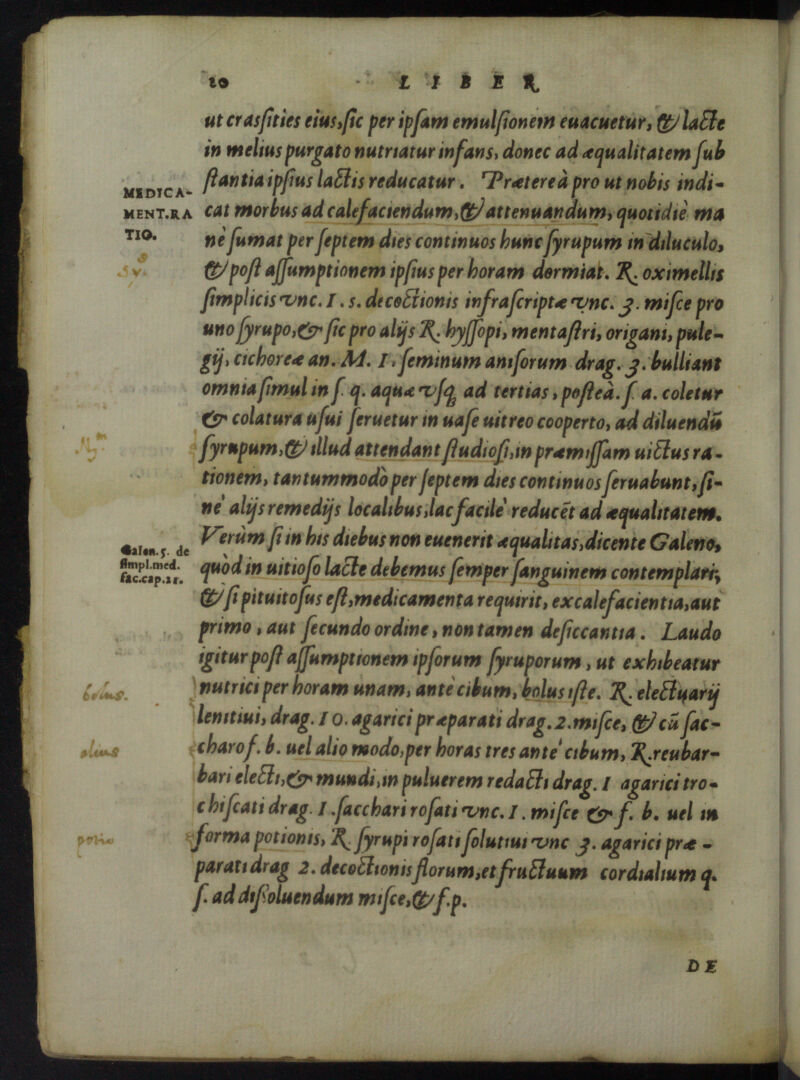 20 LIBER
ut crasſities eius, ſic per ipſam emulſionem euacuetur, & lacte
in melius purgato nutriatur infans, donec ad æqualitatem ſub
ſtantia ipſius lactis reducatur. Prætereà pro ut nobis indi-
MEDICA-
MENT.RA
TIO.
cat morbus ad calefaciendum, & attenuandum, quotidiè ma
nè ſumat per ſeptem dies continuos hunc ſyrupum in diluculo,
& poſt aſſumptionem ipſius per horam dormiat. ℞. oximellis
ſimplicis vnc. 1. s. decoctionis infraſcriptæ vnc. 3. miſce pro
uno ſyrupo, & ſic pro alijs ℞. hyſſopi, mentaſtri, origani, pule-
gij, cichoreæ an. M. 1. ſeminum aniſorum drag. 3. bulliant
omnia ſimul in ſ. q. aquæ vſq; ad tertias, poſteà. ſ. a. coletur
& colatura uſui ſeruetur in uaſe uitreo cooperto, ad diluendū
ſyrupum, & illud attendant ſtudioſi, in præmiſſam uictus ra-
tionem, tantummodò per ſeptem dies continuos ſeruabunt, ſi-
nè alijs remedijs localibus, lac facilè reducēt ad æqualitatem.
Verùm ſi in his diebus non euenerit æqualitas, dicente Galeno,
Galen.5. de
ſimpl.med.
fac.cap.21.
quòd in uitioſo lacte debemus ſemper ſanguinem contemplari;
& ſi pituitoſus eſt, medicamenta requirit, excalefacientia, aut
primo, aut ſecundo ordine, non tamen deſiccantia. Laudo
igitur poſt aſſumptionem ipſorum ſyruporum, ut exhibeatur
nutrici per horam unam, antè cibum, bolus iſte. ℞. electuarij
bolus.
lenitiui, drag. 10. agarici præparati drag. 2. miſce, & cū ſac-
alius
charo f. b. uel alio modo, per horas tres antè cibum, ℞. reubar-
bari electi, & mundi, in puluerem redacti drag. 1 agarici tro-
chiſcati drag. 1. ſacchari roſati vnc. 1. miſce & f. b. uel in
potio
forma potionis, ℞. ſyrupi roſati ſolutiui vnc 3. agarici præ-
parati drag 2. decoctionis florum, et fructuum cordialium q.
ſ. ad diſſoluendum miſce, & f. p.
DE